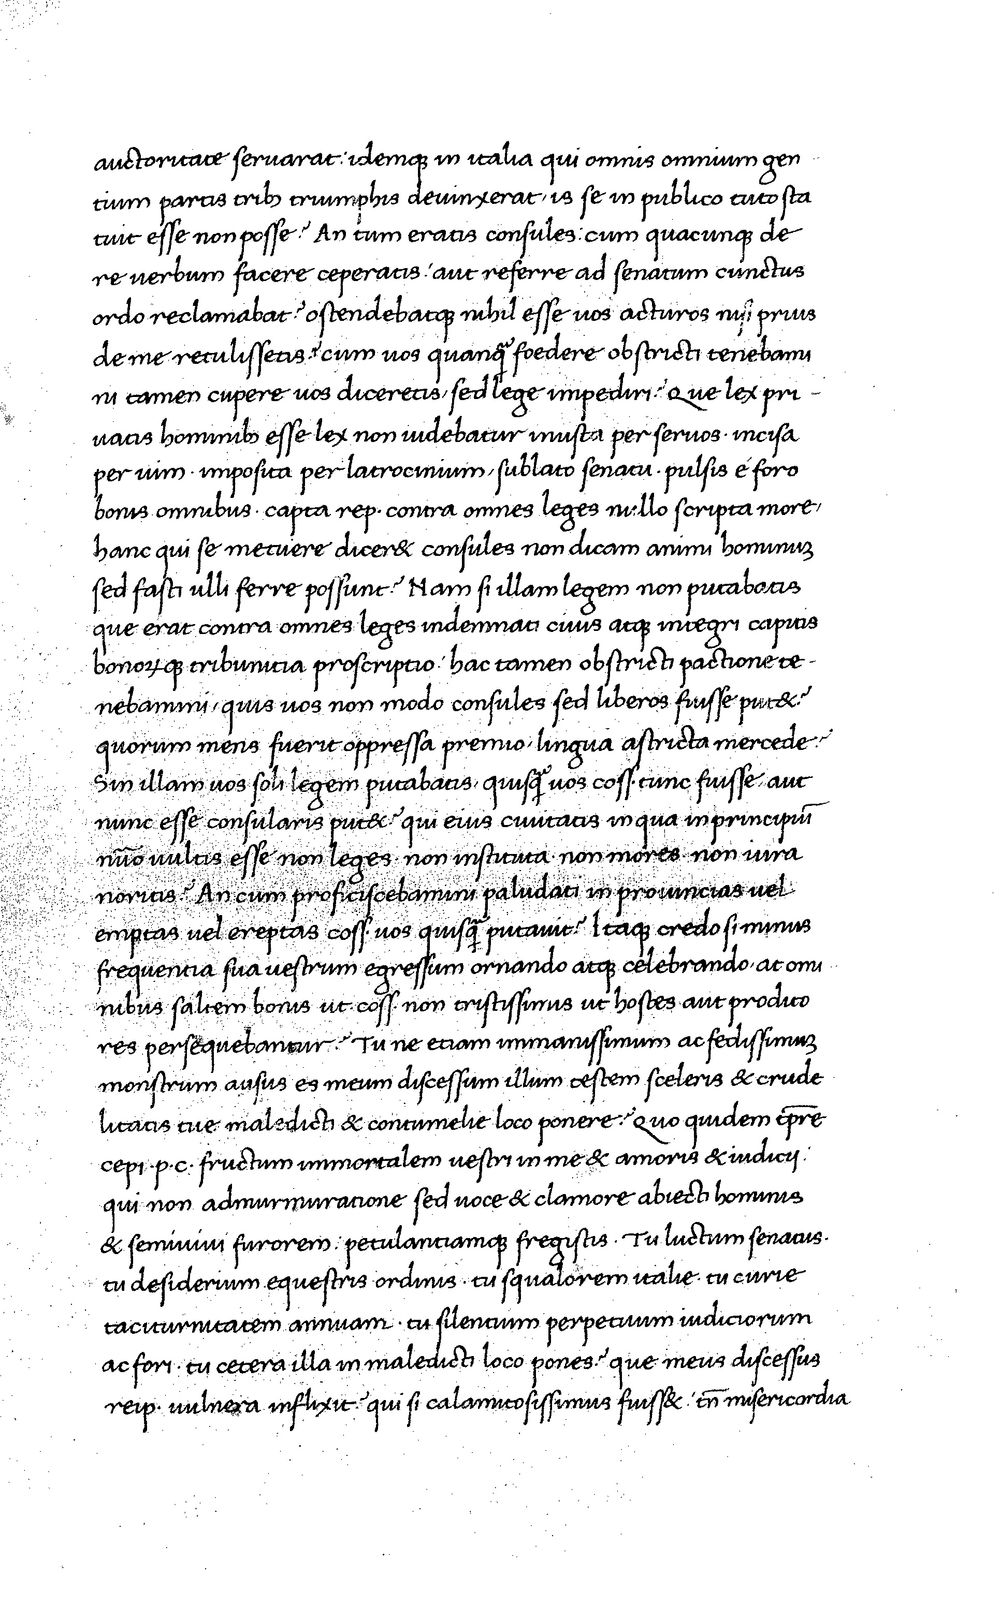 auctoritate seruarat: idemq; in italia qui omnis omnium gen
tium partis trib; triumphis deuinxerat, is se in publico tuto sta
tuit esse non posse? An tum eratis consules: cum quacunq; de
re uerbum facere ceperatis: aut referre ad senatum cunctus
ordo reclamabat? ostendebatq; nihil esse uos acturos nisi prius
de me retulissetis? cum uos quanq̃ foedere obstricti tenebami
ni tamen cupere uos diceretis, sed lege impediri? Que lex pri -
uatis hominib; esse lex non uidebatur inusta per seruos · incisa
per uim · imposita per latrocinium, sublato senatu · pulsis e foro
bonis omnibus · capta rep. contra omnes leges nullo scripta more,
hanc qui se metuere dicer& consules non dicam animi hominuz
sed fasti ulli ferre possunt? Nam si illam legem non putabatis
que erat contra omnes leges indemnati ciuis atq; integri capitis
bonoꝝq; tribunitia proscriptio: hac tamen obstricti pactione te -
nebamini, quis uos non modo consules sed liberos fuisse put&?
quorum mens fuerit oppressa premio, lingua astricta mercede?
Sin illam uos soli legem putabatis, quisq̃ uos coss. tunc fuisse, aut
nunc esse consularis put&? qui eius ciuitatis in qua in principiū
nūo uultis esse non leges · non instituta · non mores · non iura
noritis? An cum proficiscebamini paludati in prouincias uel
emptas uel ereptas coss. uos quisq̃ putauit? Itaq; credo si minus
frequentia sua uestrum egressum ornando atq; celebrando, at omi
nibus saltem bonis ut coss. non tristissimis ut hostes aut prodito
res persequebantur? Tu ne etiam immanissimum ac fedissimuz
monstrum ausus es meum discessum illum testem sceleris & crude
litatis tue maledicti & contumelie loco ponere? Quo quidem tp̄re
cepi · p. c. fructum immortalem uestri in me & amoris & iudicij:
qui non admurmuratione sed uoce & clamore abiecti hominis
& seminiui furorem: petulantiamq; fregistis · Tu luctum senatus ·
tu desiderium equestris ordinis · tu squalorem italie · tu curie
taciturnitatem annuam · tu silentium perpetuum iudiciorum
ac fori · tu cetera illa in maledicti loco pones? que meus discessus
reip. uulnera inflixit? qui si calamitosissimus fuiss&: tn̄ misericordia